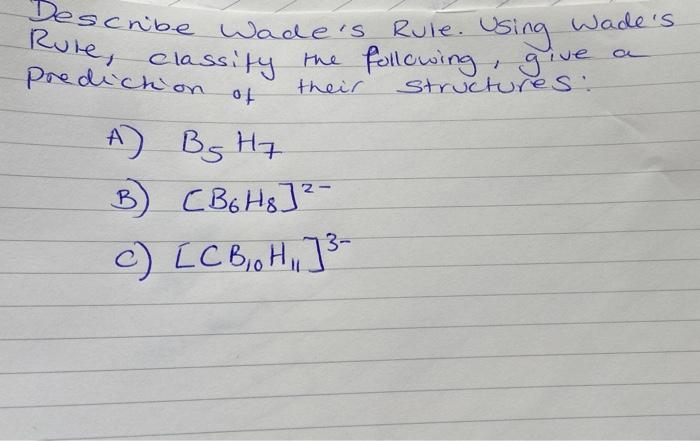 Describe Wade's Rule. Using Wade's
Rule, classify the following, give a
prediction of their structures:
A) B₅H₇
B) [B₆H₈]²⁻
C) [CB₁₀H₁₁]³⁻